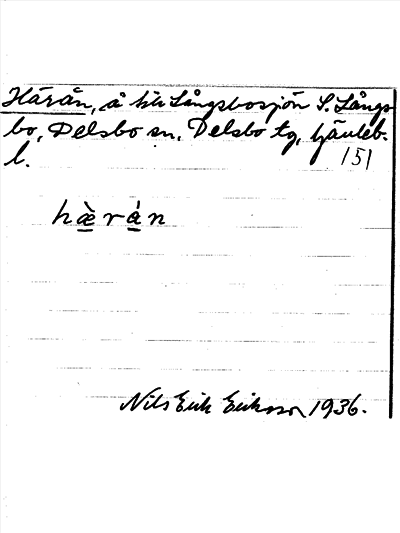 Härån, å till Långsbosjön S. Långs-
bo, Delsbo sn, Delsbo tg, Gävleb.
l. 151
hæ̀rán
Nils Erik Eriksson 1936.